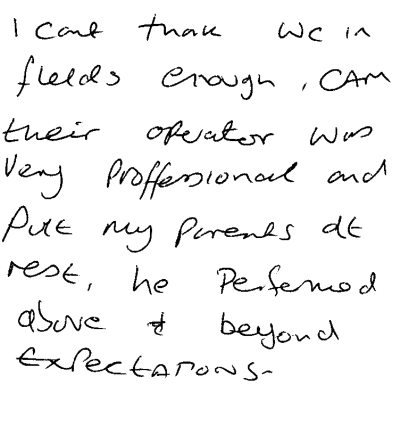 I cant thank WC in
fields enough, CAM
their operator was
Very Proffessional and
Put my Parents at
rest, he Performed
above & beyond
Expectations.